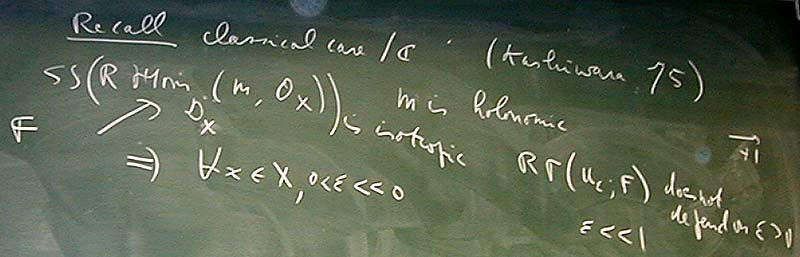 Recall classical case / ℂ . (Kashiwara 75)
SS(R Hom_{D_X}(m, O_X)) is isotropic m is holonomic
F
⇒ ∀x ∈ X, 0<ε<<0 RΓ(U_ε; F) does not depend on ε>0
ε<<1